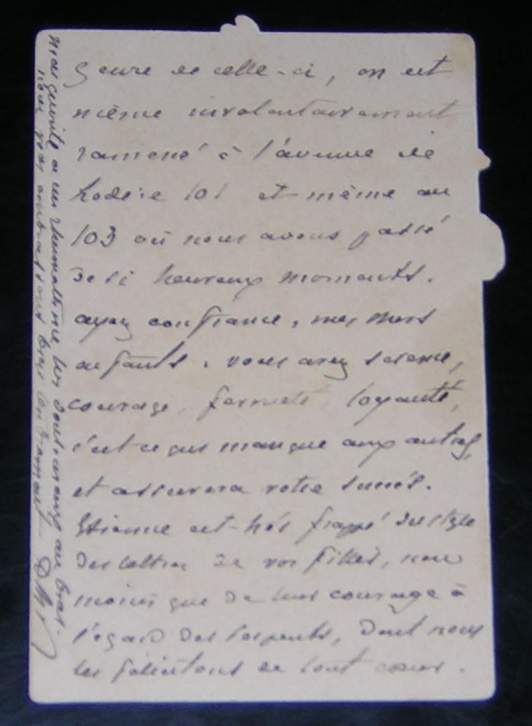 genre de celle-ci, on est
même involontairement
ramené à l'avenue de
101 et même au
103 où nous avons passé
de si heureux moments.
ayez confiance, mes chers
enfants. vous avez science,
courage, fermeté loyauté,
c'est ce qui manque aux autres,
et assurera votre succès.
Etienne est très frappé du style
des lettres de vos filles, non
moins que de leur courage à
l'égard des serpents, dont nous
les félicitons de tout coeur.
Marguerite a un rhumatisme très douloureux au bras.
nous vous embrassons bien